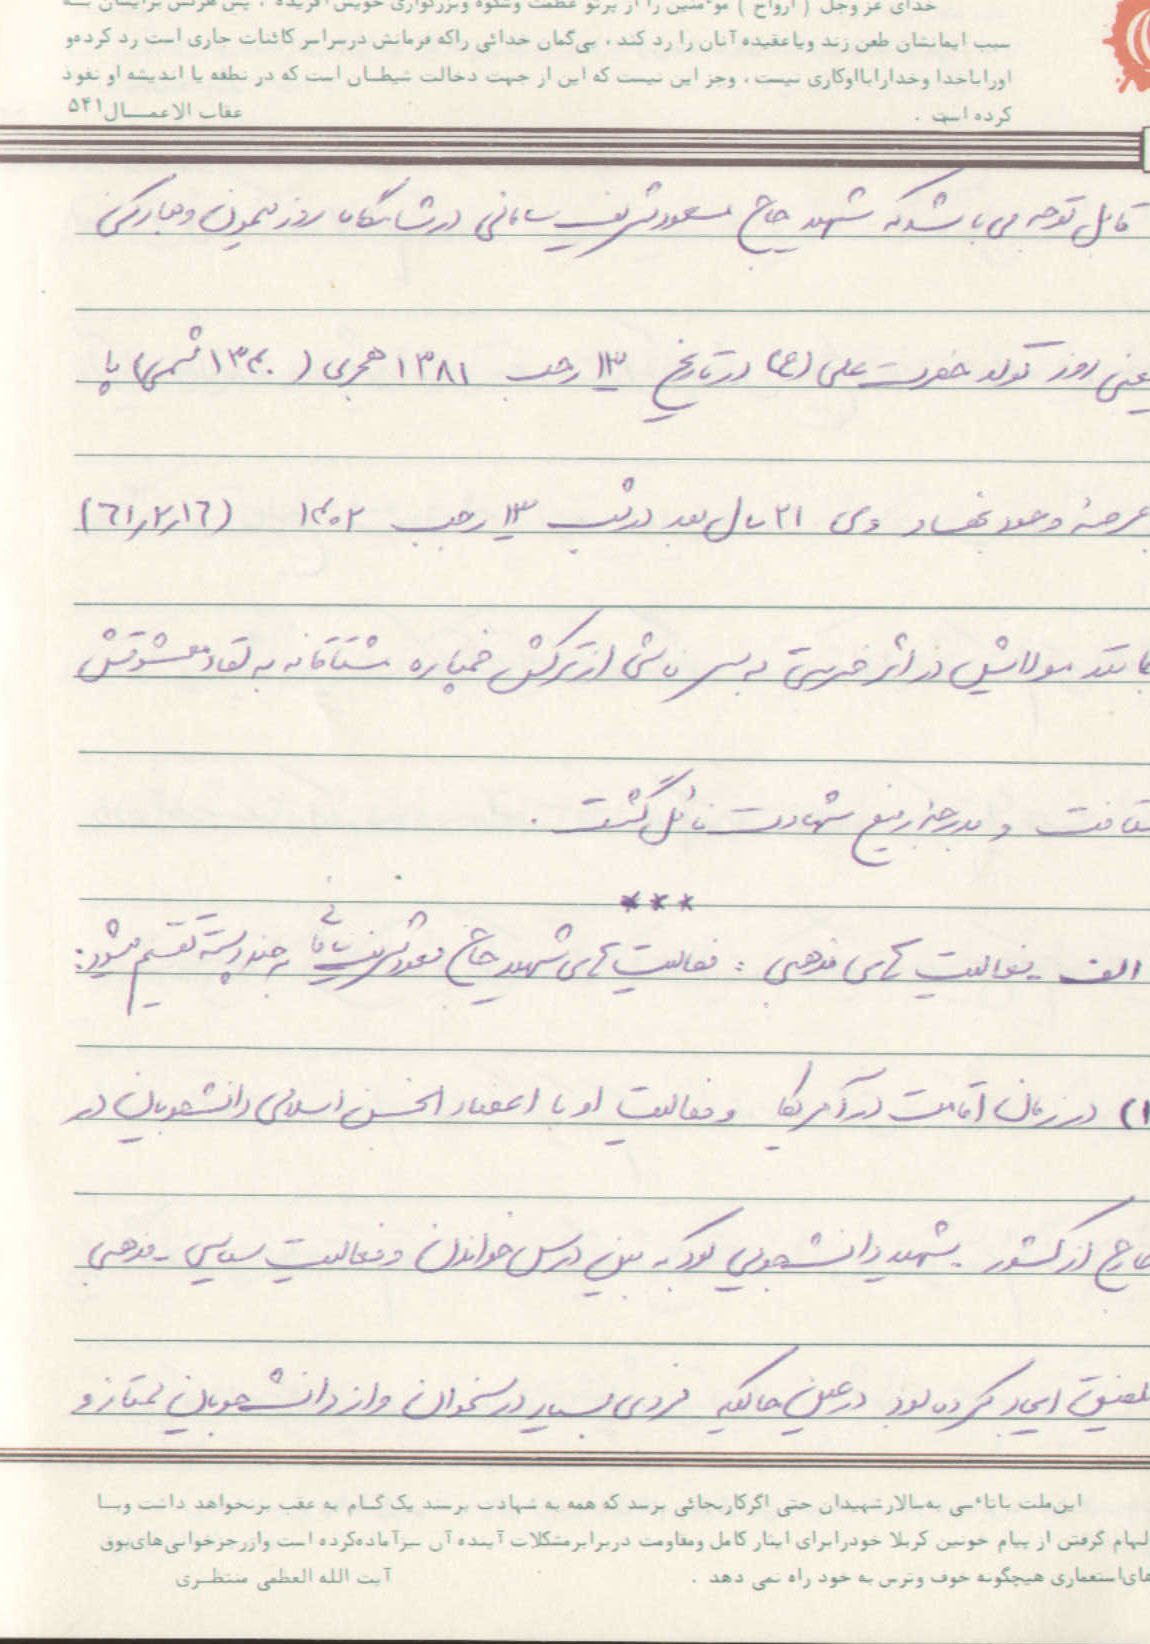 خدای عز وجل ( ارواح ) موٴمنین را از پرتو عظمت وشکوه وبزرگواری خویش آفریده ، پس هرکس برایشان بــه
سبب ایمانشان طعن زند ویاعقیده آنان را رد کند ، بی‌گمان خدائی راکه فرمانش درسراسر کائنات جاری است رد کرده‌و
اوراباخدا وخداراباا‌وکاری نیست ، وجز این نیست که این از جهت دخالت شیطــان است که در نطفه یا اندیشه او نفوذ
کرده است .
عقاب الاعمــــال۵۴۱
قابل توجه می باشد که شهید حاج مسعود شریف سامانی در شامگاه روز میمون و مبارکی
یعنی روز تولد حضرت علی (ع) در تاریخ ۱۳ رجب ۱۳۸۱ هجری ( ۱۳۴۰ شمسی) پا
بعرصهٔ وجود نهاد و وی ۲۱ سال بعد در شب ۱۳ رجب ۱۴۰۲ (۶۱٫۲٫۱۶)
مانند مولایش در اثر ضربتی به سر ناشی از ترکش خمپاره مشتاقانه به لقاء معشوقش
شتافت و بدرجهٔ رفیع شهادت نائل گشت .
***
الف - فعالیت های مذهبی : فعالیت های شهید حاج مسعود شریف سامانی به چند دسته تقسیم میشود:
۱) در زمان اقامت در آمریکا و فعالیت او با اعضاء انجمن اسلامی دانشجویان در
خارج از کشور . شهید دانشجویی بود که بین درس خواندن و فعالیت سیاسی - مذهبی
تلفیق ایجاد کرده بود در عین حالیکه فردی بسیار درسخوان و از دانشجویان ممتاز و
این‌ملت باتاٴسی به‌سالارشهیدان حتی اگرکاربجائی برسد که همه به شهادت برسند یک گــام به عقب برنخواهد داشت وبــا
الهام گرفتن از پیام خونین کربلا خودرابرای ایثار کامل ومقاومت دربرابرمشکلات آینده آن نیزآماده‌کرده است وازرجزخوانی‌های‌بوق
های‌استعماری هیچگونه خوف وترس به خود راه نمی دهد .
آیت الله العظمی منتظــری